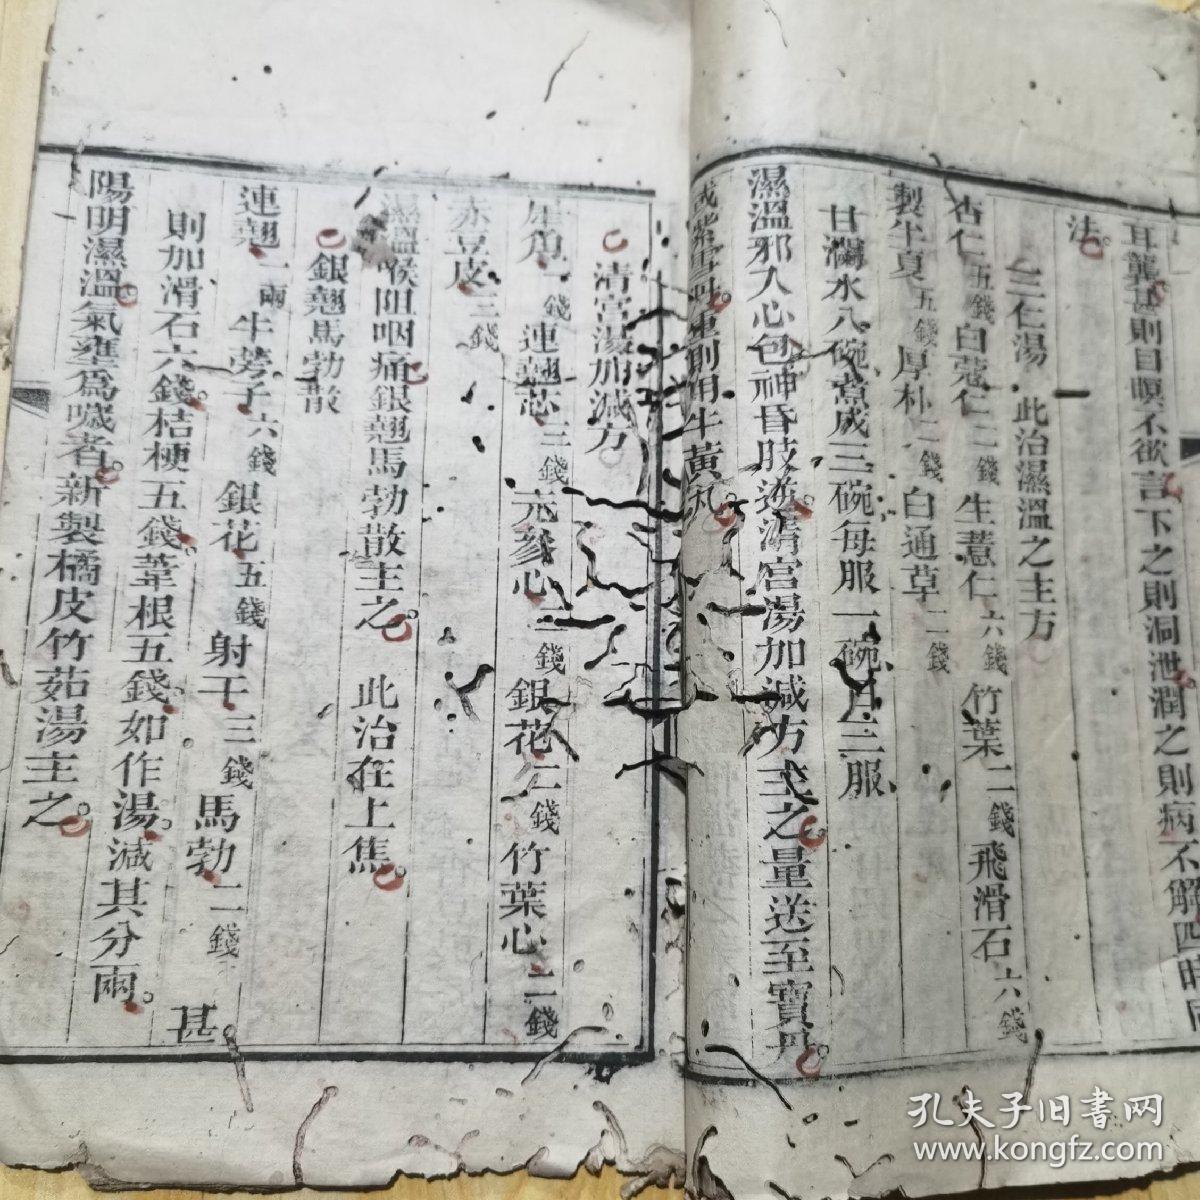 耳聾甚則目瞑不欲言下之則洞泄潤之則病不解四時同
法。
三仁湯　此治濕溫之主方
杏仁五錢白蔻仁二錢生薏仁六錢竹葉二錢飛滑石六錢
製半夏五錢厚朴二錢白通草二錢
甘瀾水八碗煮成三碗每服一碗日三服
濕溫邪入心包神昏肢逆清宮湯加減方主之量送至寶丹。
或紫雪丹。重則用牛黃丸。
清宮湯加減方
犀角一錢連翹芯三錢元參心二錢銀花二錢竹葉心二錢
赤豆皮三錢
濕溫喉阻咽痛銀翹馬勃散主之。　此治在上焦。
銀翹馬勃散
連翹一兩牛蒡子六錢銀花五錢射干三錢馬勃二錢　甚。
則加滑石六錢。桔梗五錢。葦根五錢如作湯。減其分兩。
陽明濕溫。氣壅爲噦者。新製橘皮竹茹湯主之。
孔夫子旧书网
www.kongfz.com